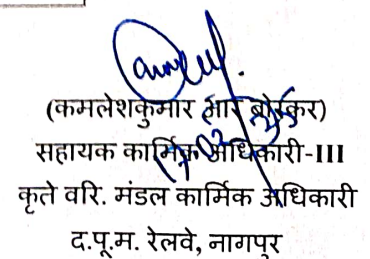 (कमलेशकुमार आर बोरकर)
सहायक कार्मिक अधिकारी-III
कृते वरि. मंडल कार्मिक अधिकारी
द.पू.म. रेलवे, नागपुर